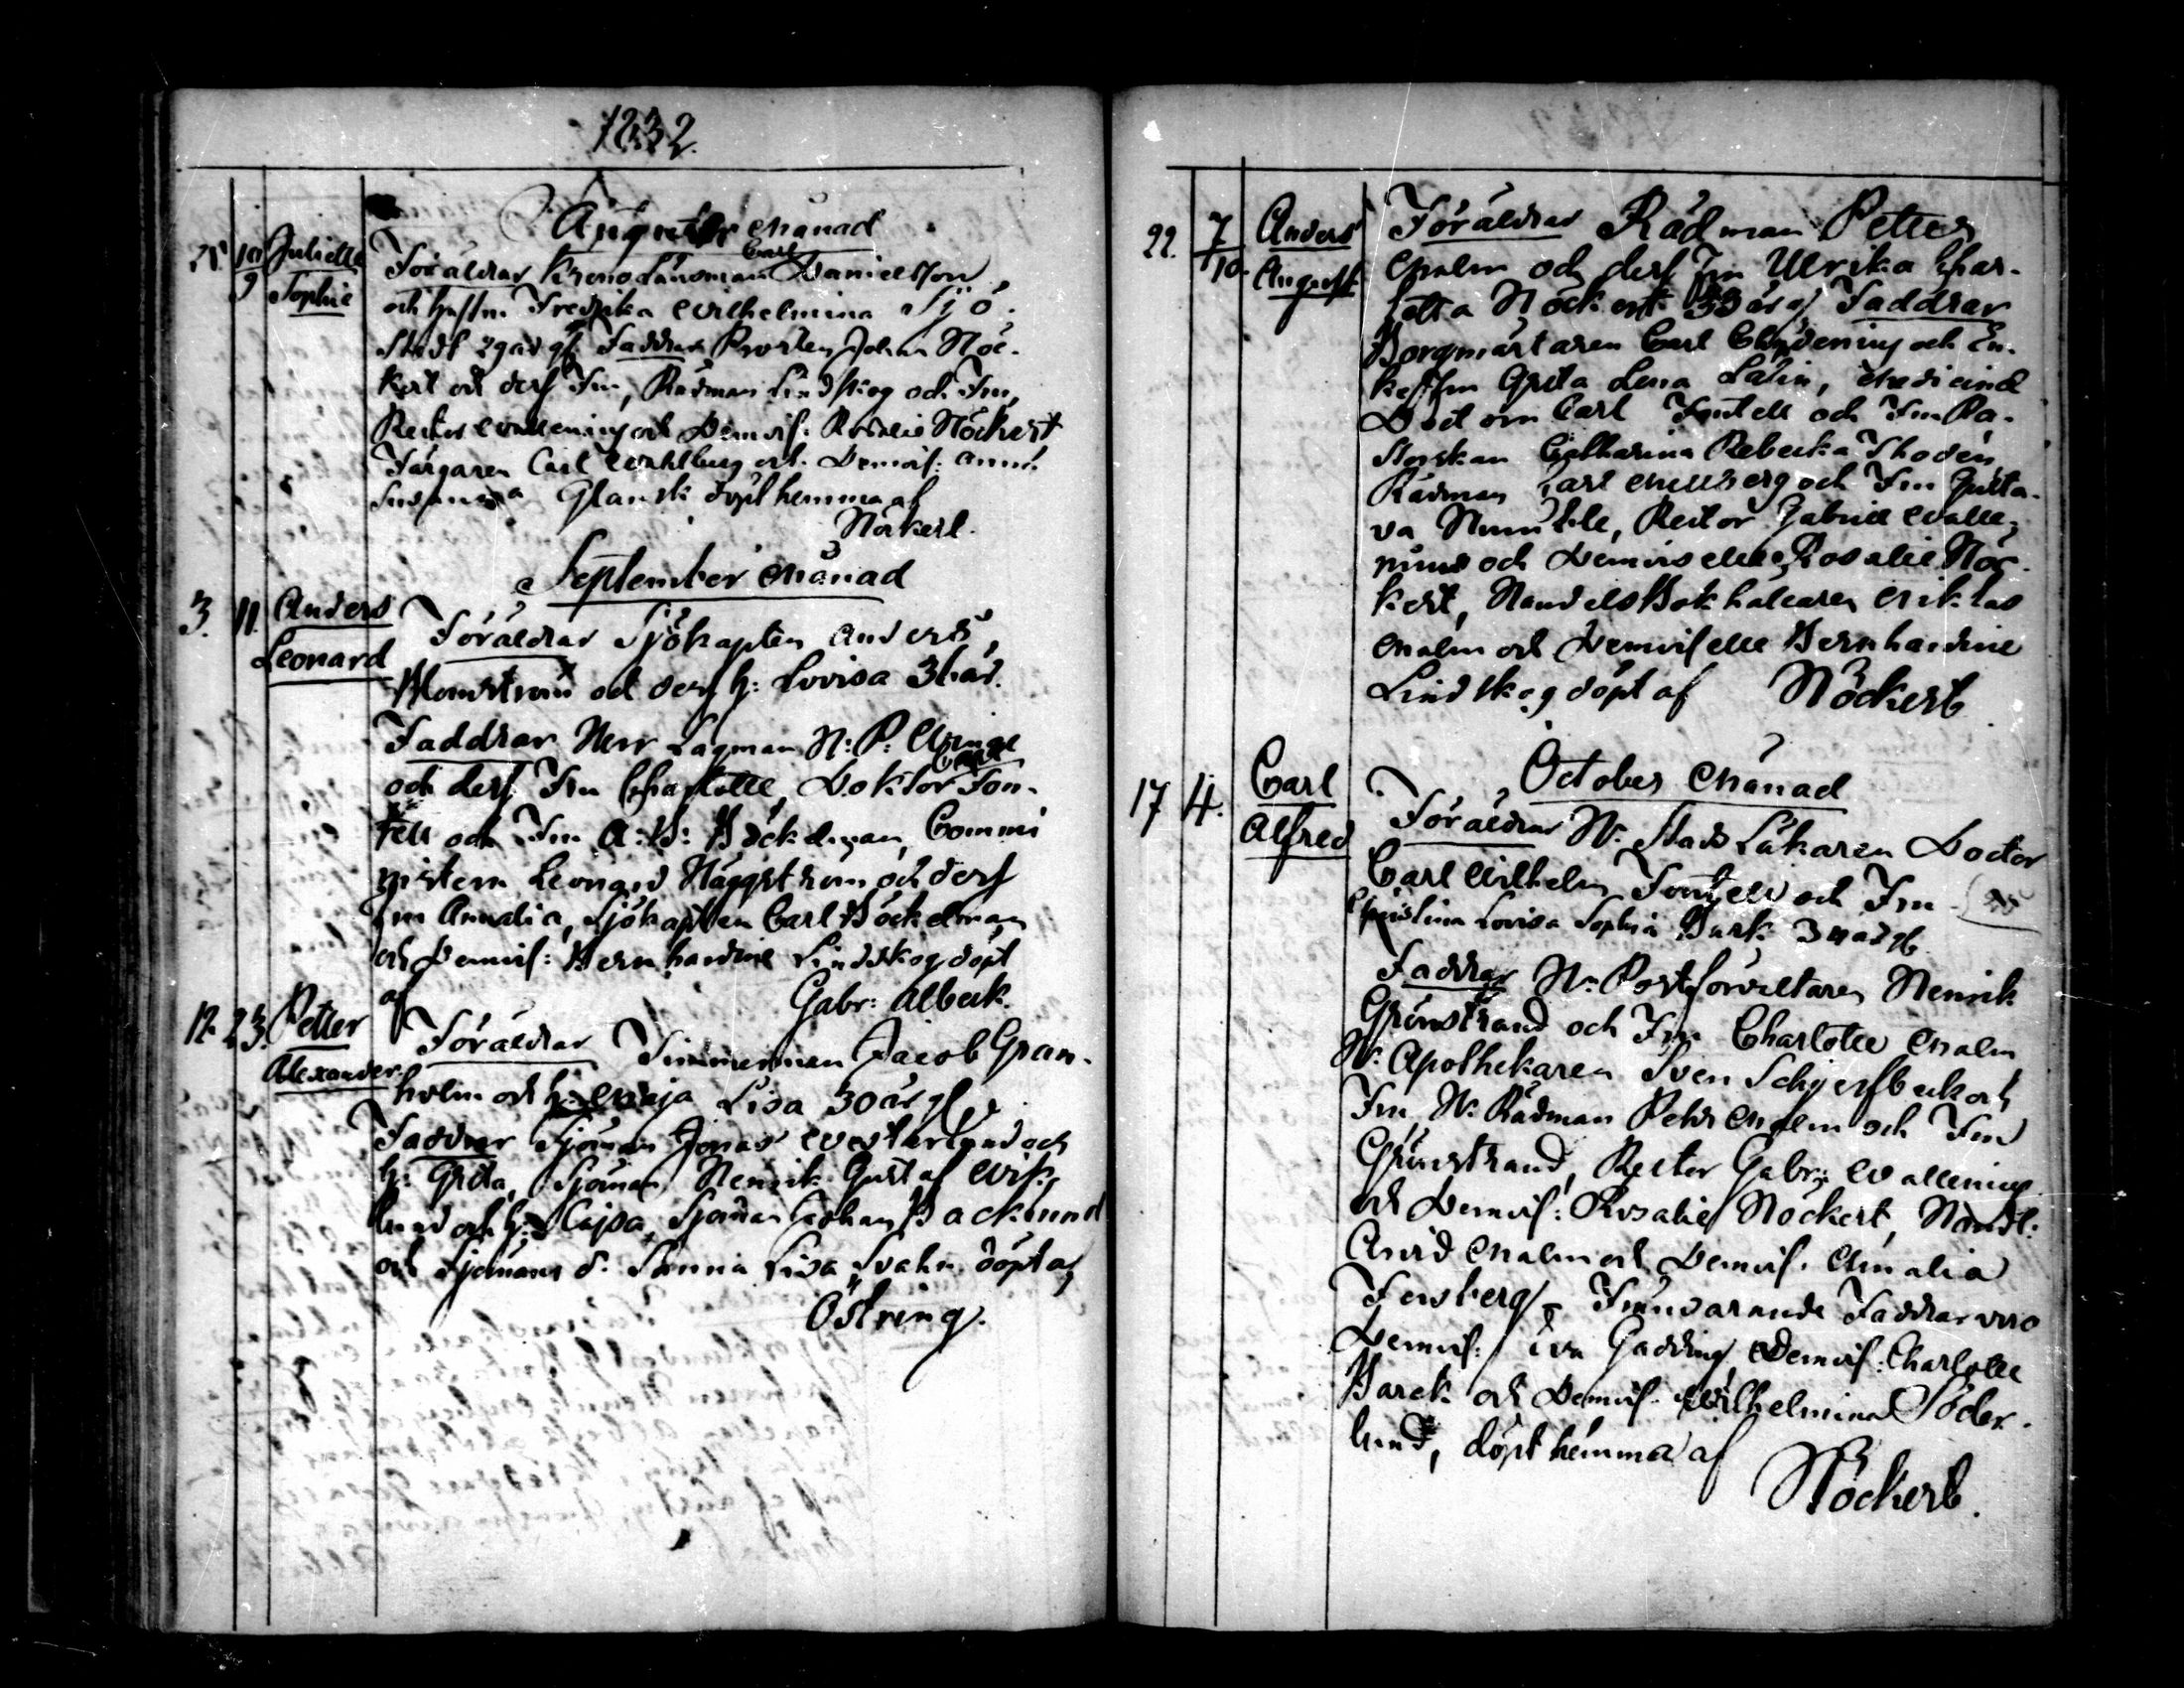 1832.
Augusti Månad
28. 10/9 Juliette Sophie
Föräldrar Kronolänsman Carl Danielsson
och hustru Fredrika Wilhelmina Sjö-
stedt 29 år gl. Faddrar Prosten Johan Nöc-
kert och ders Fru, Rådman Lindskog och Fru,
Rector Wallenius och Demois: Rosalie Nöckert
Färgaren Carl Wahlberg och Demois: Anna
Susanna Glansk döpt hemma af
Nöckert.
September Månad
3. 11. Anders Leonard
Föräldrar Sjökapten Anders
Blomström och ders h: Lovisa 36 år.
Faddrar Herr Lagman N: P:
och ders Fru Charlotte, Doktor Carl Fon-
tell och Fru A: B: Böckelman, Commi
nistern Leonard Häggström och ders
Fru Amalia, Sjökapten Carl Böckelman
och Demois: Bernhardine Lindskog döpt
af Gabr: Albeck.
12. 23. Petter Alexander
Föräldrar Timmerman Jacob Gran-
holm och h: Maja Lisa 30 år gl
Faddrar Sjöman Jonas Westerlund och
h: Greta, Sjöman Henrik Gustaf Wik-
lund och h: Cajsa, Sjöman Johan Backlund
och Sjömans d. Sanna Lisa Svahn döpt af
Östring.
22. 7/10. Anders August
Föräldrar Rådman Petter
Malm och ders Fru Ulrika Char-
lotta Nöckert 33 år gl Faddrar
Borgmästaren Carl Chydenius och En-
kefru Greta Lena Calin, Medicine
Doctorn Carl Fontell och Fru Pa-
storskan Catharina Rebecka Thodén
Rådman Carl Mellberg och Fru Gusta-
va, Rector Gabriel Walle-
nius och Demoiselle Rosalie Nöc-
kert, Handels Bokhållaren Niklas
Malm och Demoiselle Bernhardine
Lindskog döpt af Nöckert
October Månad
17 4. Carl Alfred
Föräldrar Hr. Stads Läkaren Doctor
Carl Wilhelm Fontell och Fru
Christina Lovisa Sophia Barck 34 år gl.
Faddrar Hr. Postförvaltaren Henrik
Grönstrand och Fru Charlotte Malm
Hr. Apothekaren Sven Schjerfbeck och
Fru, Hr. Rådman Petter Malm och Fru
Grönstrand, Rector Gabr: Wallenius
och Demois: Rosalie Nöckert, Handl:
Arvid Malm och Demois. Amalia
Forsberg, Frånvarande Faddrar voro
Demois: Eva Gadding, Demois: Charlotte
Barck och Demois. Wilhelmina Söder-
lund, döpt hemma af
Nöckert.